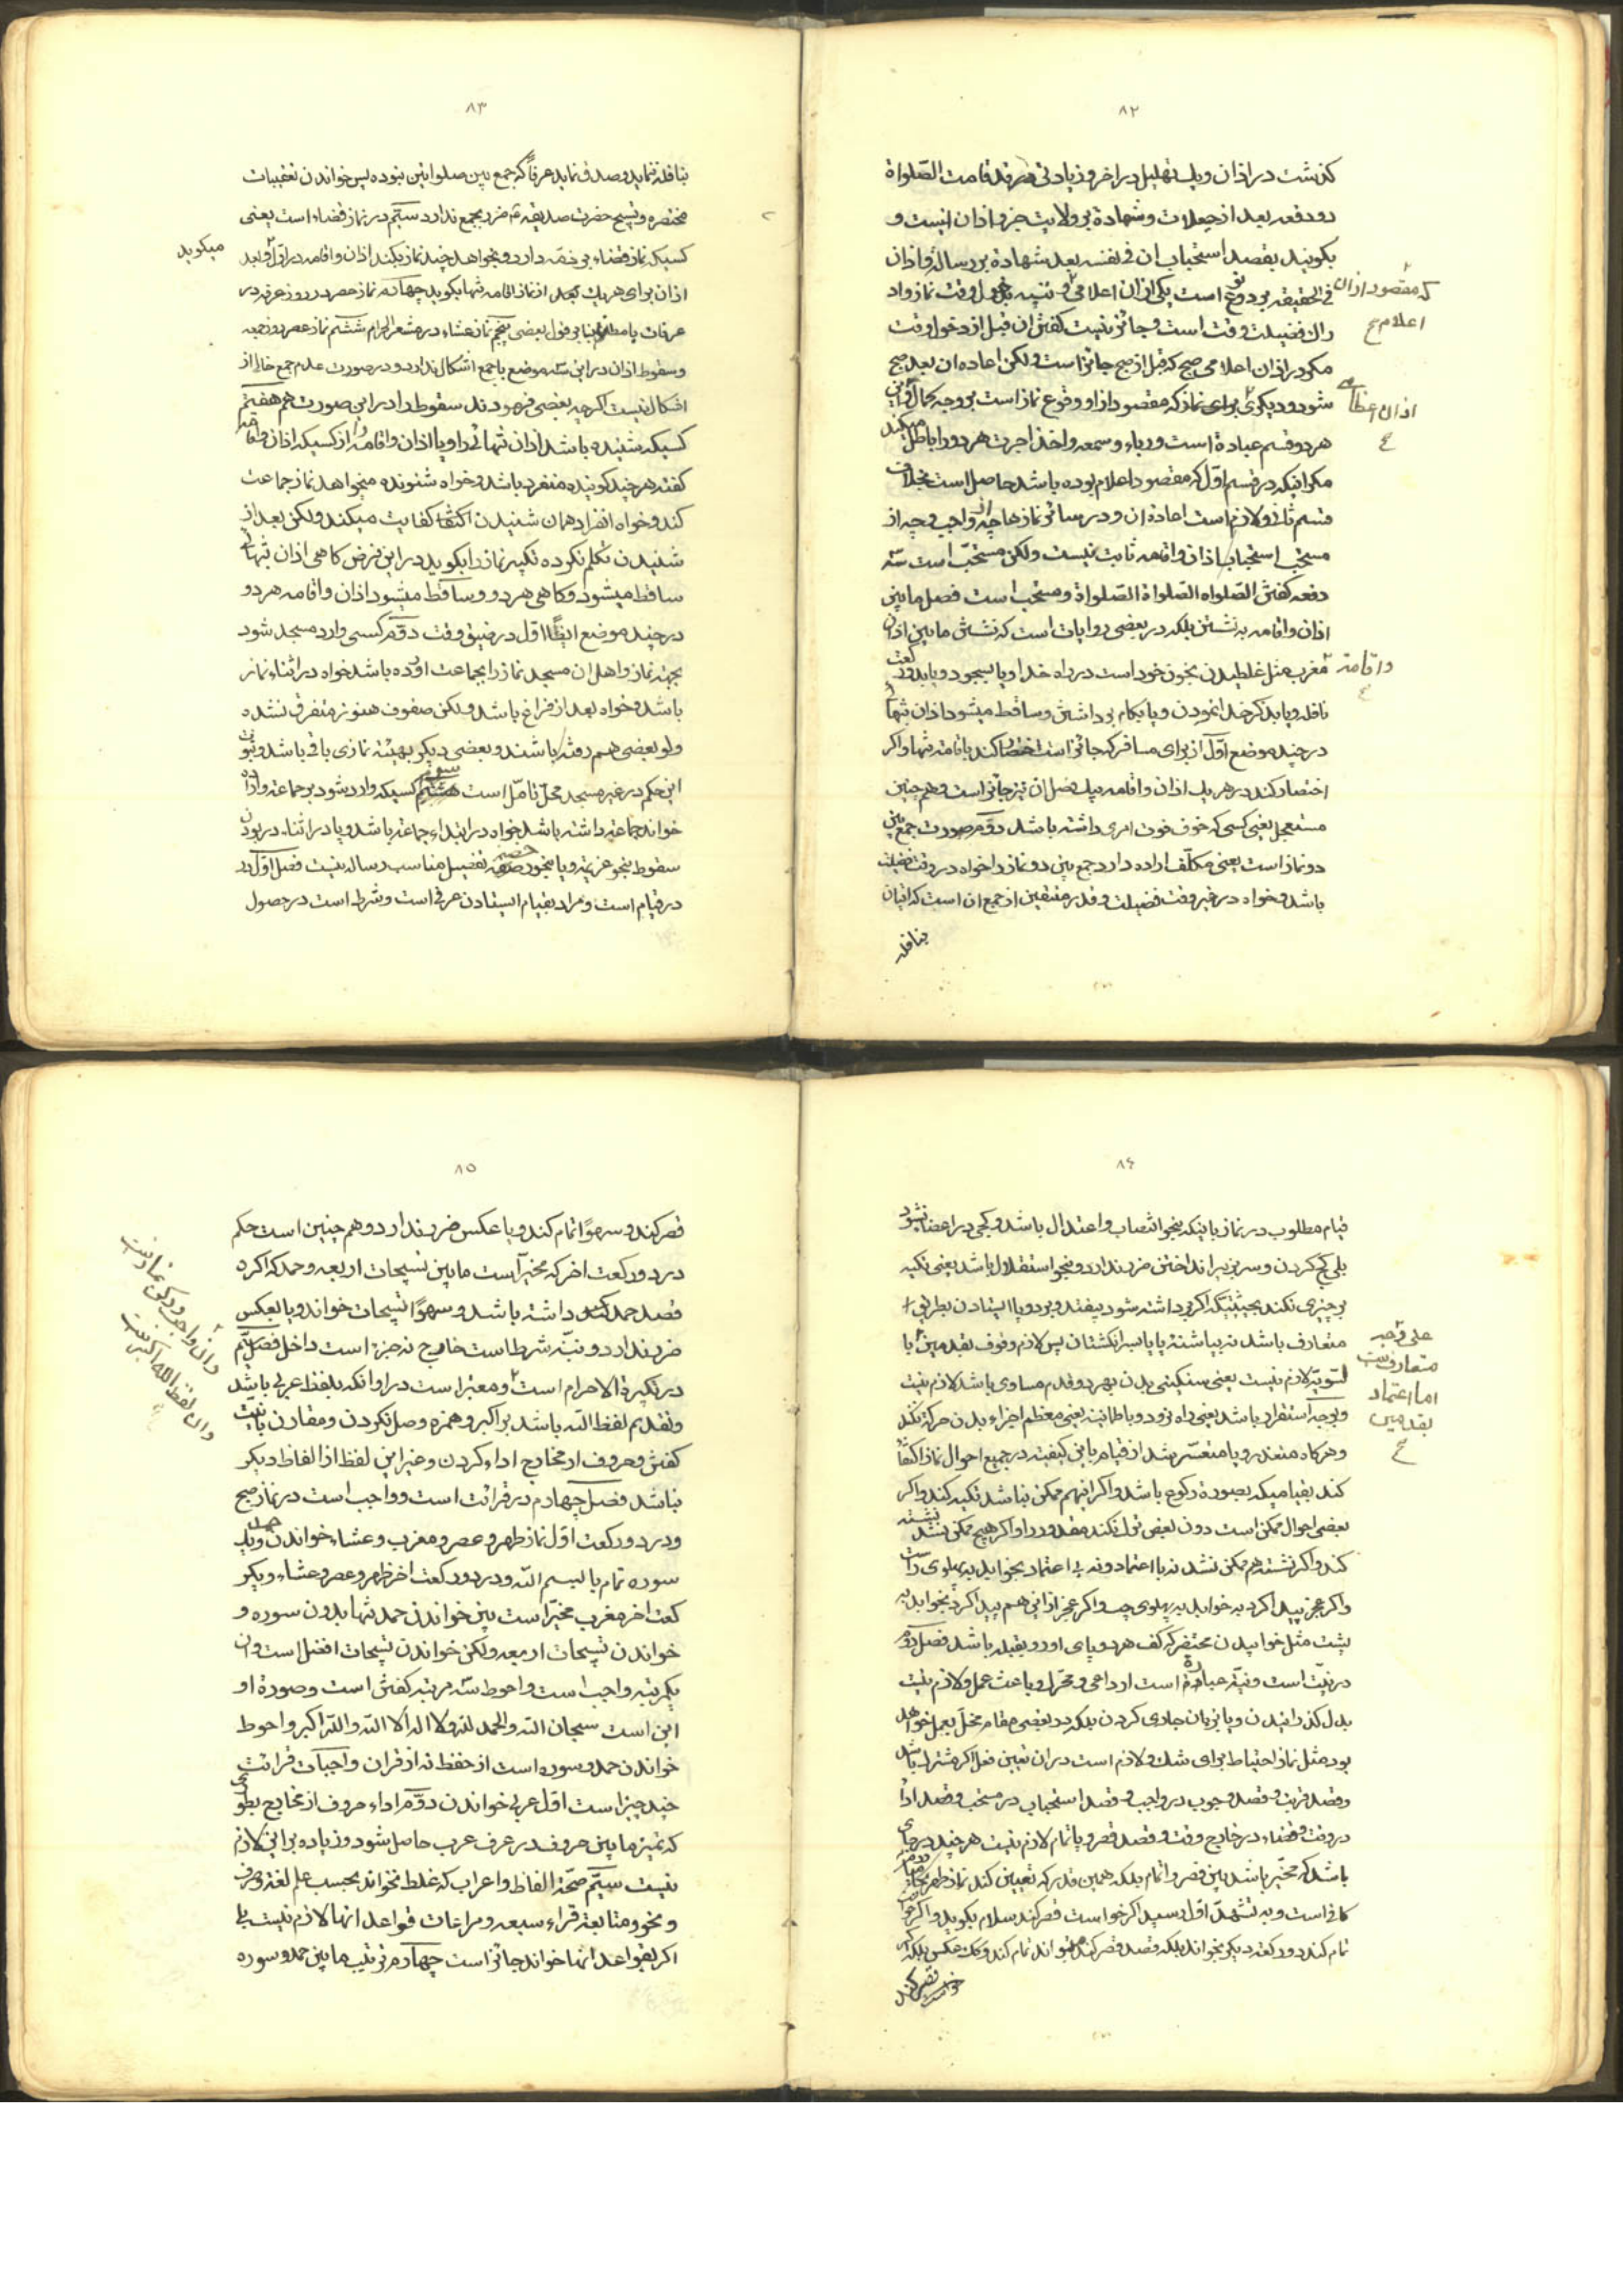 ٨٢
كذشت در اذان ويك تهليل در اخر و زيادتى قد قامت الصّلواة
دو دفعه بعد از حيعلات و شهادة بر ولايت جزو اذان نيست و
بكويند بقصد استحباب ان فى نفسه بعد شهادة بر رسالة و اذان
فى الحقيقه بر دو نوع است يكى اذان اعلامى و تنبيه دخول وقت نماز واد
راك فضيلت وقت است و جائز نيست كفتن ان قبل از دخول وقت
مكر در اذان اعلامى صبح كه قبل از صبح جائز است و لكن اعاده ان بعد صبح
شود و ديكرى براى نماز كه مقصود از او وقوع نماز است بر وجه كمال و اين
هر دو قسم عبادة است و رياء و سمعه و اخذ اجرت هر دو را باطل ميكند
مكر اينكه در قسم اوّل كه مقصود اعلام بوده باشد حاصل است بخلاف
قسم ثانى و لازم است اعادة ان و در سائر نمازها چه از واجب و چه از
مستحب استحباب اذان و اقامه ثابت نيست و لكن مستحبّ است سّه
دفعه كفتن الصّلواه الصّلواة الصّلواة و مستحب است فصل مابين
اذان و اقامه به نشستن بلكه در بعضى روايات است كه نشستن مابين اذان
مغرب مثل غلطيدن بخون خود است در راه خدا و يا بسجود و يا بدو ركعت
نافله و يا بذكر خدا نمودن و يا بكام برداشتن و ساقط ميشود اذان تنها
در چند موضع اوّل از براى مسافر كه جائز است اختصار كند باقامة تنها و اكر
اختصار كند در هر يك اذان و اقامه بيك فصل ان نيز جائز است و هم چنين
مستعجل يعنى كسى كه خوف فوت امرى داشته باشد دوّم در صورت جمع بين
دو نماز است يعنى مكلّف اراده دارد جمع بين دو نماز را خواه در وقت فضيلت
باشد و خواه در غير وقت فضيلت و قدر متيقن از جمع ان است كه اتيان
بنافله
كه مقصود اذان
اعلام ع
اذان اعظا
ع
و اقامة
ع
٨٣
بنافله ننمايد و صدق نمايد عرفاً كه جمع بين صلواتين نبوده پس خواندن تعقيبات
مختصره و تسبيح حضرت صديقه ضرر بجمع ندارد سيّم در نماز قضاء است يعنى
كسيكه نماز قضاء بر ذمّه دارد و بخواهد چند نماز بكند اذان و اقامه در اوّل و بعد
ميكويد
اذان براى هر يك بعد از نماز اقامه تنها بكويد چهارم نماز عصر در روز عرفه در
عرفات يا مطلقا بنا بر قول بعضى پنجم نماز عشاء در مشعر الحرام ششم نماز عصر روز جمعه
و سقوط اذان در اين سه موضع با جمع اشكال ندارد و در صورت عدم جمع خالى از
اشكال نيست اكر چه بعضى فرمودند سقوط را در اين صورت هم هفتم
كسيكه شنيده باشد اذان تنهائى را و يا اذان و اقامه را از كسيكه اذان و اقامه
كفته هر چند كوينده منفرد باشد و خواه شنونده ميخواهد نماز جماعت
كند و خواه انفراد همان شنيدن اكتفا كفايت ميكند و لكن بعد از
شنيدن تكلّم نكرده تكبيره نماز را بكويد در اين فرض كاهى اذان تنهائى
ساقط ميشود و كاهى هر دو و ساقط ميشود اذان و اقامه هر دو
در چند موضع ايضًا اوّل در ضيق وقت دوّم كسى وارد مسجد شود
بجهة نماز و اهل ان مسجد نماز را بجماعت اورده باشد خواه در اثناء نماز
باشد و خواه بعد از فراغ باشد و لكن صفوف هنوز متفرق نشده
و لو بعضى هم رفته باشند و بعضى ديكر بهيئة نمازى باقى باشد و ثبوت
اين حكم در غير مسجد محلّ تامّل است سيم كسيكه وارد شود بر جماعة و اراده
خواندن جماعة داشته باشد خواه در ابتداء جماعة باشد و يا در اثناء در بودن
سقوط بنحو عزيمة و يا بنحو رخصة تفصيل مناسب رساله نيست فصل اوّل در
در قيام است و مراد بقيام ايستادن عرفى است و شرط است در حصول
٨٤
قيام مطلوب در نماز باينكه بنحو انتصاب و اعتدال باشد و كجى در اعضا نشود
بلى كج كردن و سر بزير انداختن ضرر ندارد و بنحو استقلال باشد يعنى تكيه
بر چيزى نكند بحيثيتيكه اكر برداشته شود بيفتد و بر دو پا ايستادن بطريق
متعارف باشد نه بپاشنه پا يا بسر انكشتان پس لازم وقوف بقدمين با
لسّويّة لازم نيست يعنى سنكينى بدن بهر دو قدم مساوى باشد لازم نيست
و بوجه استقرار باشد يعنى راه نرود و با طمانينة يعنى معظم اجزاء بدن حركة نكند
و هر كاه متعذر و يا متعسّر شد از قيام باين كيفيّة در جميع احوال نماز اكتفا
كند بقياميكه بصورة ركوع باشد و اكر اينهم ممكن نباشد تكيه كند و اكر
بعضى احوال ممكن است دون بعض ترك نكند مقدور را و اكر هيچ ممكن نشد نشسته
كند و اكر نشسته هم ممكن نشد نه با اعتماد و نه بى اعتماد بخوابد به پهلوى راست
و اكر عجز پيدا كرد به خوابد به پهلوى چپ و اكر عجز از اين هم پيدا كرد بخوابد به
پشت مثل خوابيدن محتضر كه كف هر دو پاى او رو بقبله باشد فصل دوّم
در نيّت است و نيّة عبارة است از داعى و محرّك و باعث عمل و لازم نيست
بدل كذرانيدن و يا بزبان جارى كردن بلكه در بعضى مقام مخلّ بعمل خواهد
بود مثل نماز احتياط براى شك و لازم است در ان تعيين فعل اكر مشترك باشد
و قصد قربت و قصد وجوب در واجب و قصد استحباب در مستحب و قصد ادا
در وقت و قضاء در خارج وقت و قصد قصر و يا تمام لازم نيست هر چند در جاى
باشد كه مخيّر باشد بين قصر و اتمام بلكه همين قدر كه تعيين كند نماز ظهر
كافى است و به تشهّد اوّل رسيد اكر خواست قصر كند سلام بكويد و اكر خواست
تمام كند دو ركعة ديكر بخواند بلكه قصد قصر كند ميتواند تمام كند و كك عكس بلكه اكر
قصر كند
على وجه
متعارف نيست
اما اعتماد
بقدمين
ع
٨٥
قصر كند و سهوًا تمام كند و يا عكس ضرر ندارد و هم چنين است حكم
در دو ركعت اخر كه مخيّر است مابين تسبيحات اربعه و حمد كه اكر
قصد حمد داشته باشد و سهوًا تسبيحات خواند و يا بعكس
ضرر ندارد و نيّة شرط است خارج نه جزء است داخل فصل سيّم
در تكبيرة الاحرام است و معتبر است در او انكه بلفظ عربى باشد
و تقديم لفظ اللّه باشد بر اكبر و همزه وصل نكردن و مقارن با نيّت
كفتن و حروف از مخارج اداء كردن و غير اين لفظ از الفاظ ديكر
نباشد فصل چهارم در قرائت است و واجب است در نماز صبح
و در دو ركعت اوّل نماز ظهر و عصر و مغرب و عشاء خواندن حمد و يك
سوره تمام با بسم اللّه و در دو ركعت اخر ظهر و عصر و عشاء و يكر
كعت اخر مغرب مخيّر است بين خواندن حمد تنها بدون سوره و
خواندن تسبيحات اربعه و لكن خواندن تسبيحات افضل است و ان
يكمرتبه واجب است و احوط سّه مرتبه كفتن است و صورة او
اين است سبحان اللّه و الحمد للّه و لا اله الّا اللّه و اللّه اكبر و احوط
خواندن حمد و سوره است از حفظ نه از قران و واجبات قرائت
چند چيز است اوّل عربى خواندن دوّم اداء حروف از مخارج بطورى
كه تميز مابين حروف در عرف عرب حاصل شود و زياده بر اين لازم
نيست سيّم صحّة الفاظ و اعراب كه غلط نخواند بحسب علم لغة و صرف
و نحو و متابعة قراء سبعه و مراعات قواعد انها لازم نيست بلى
اكر بقواعد انها خواند جائز است چهارم ترتيب مابين حمد و سوره
و ان واجب و ركن نماز است
و ان لفظ اللّه اكبر است